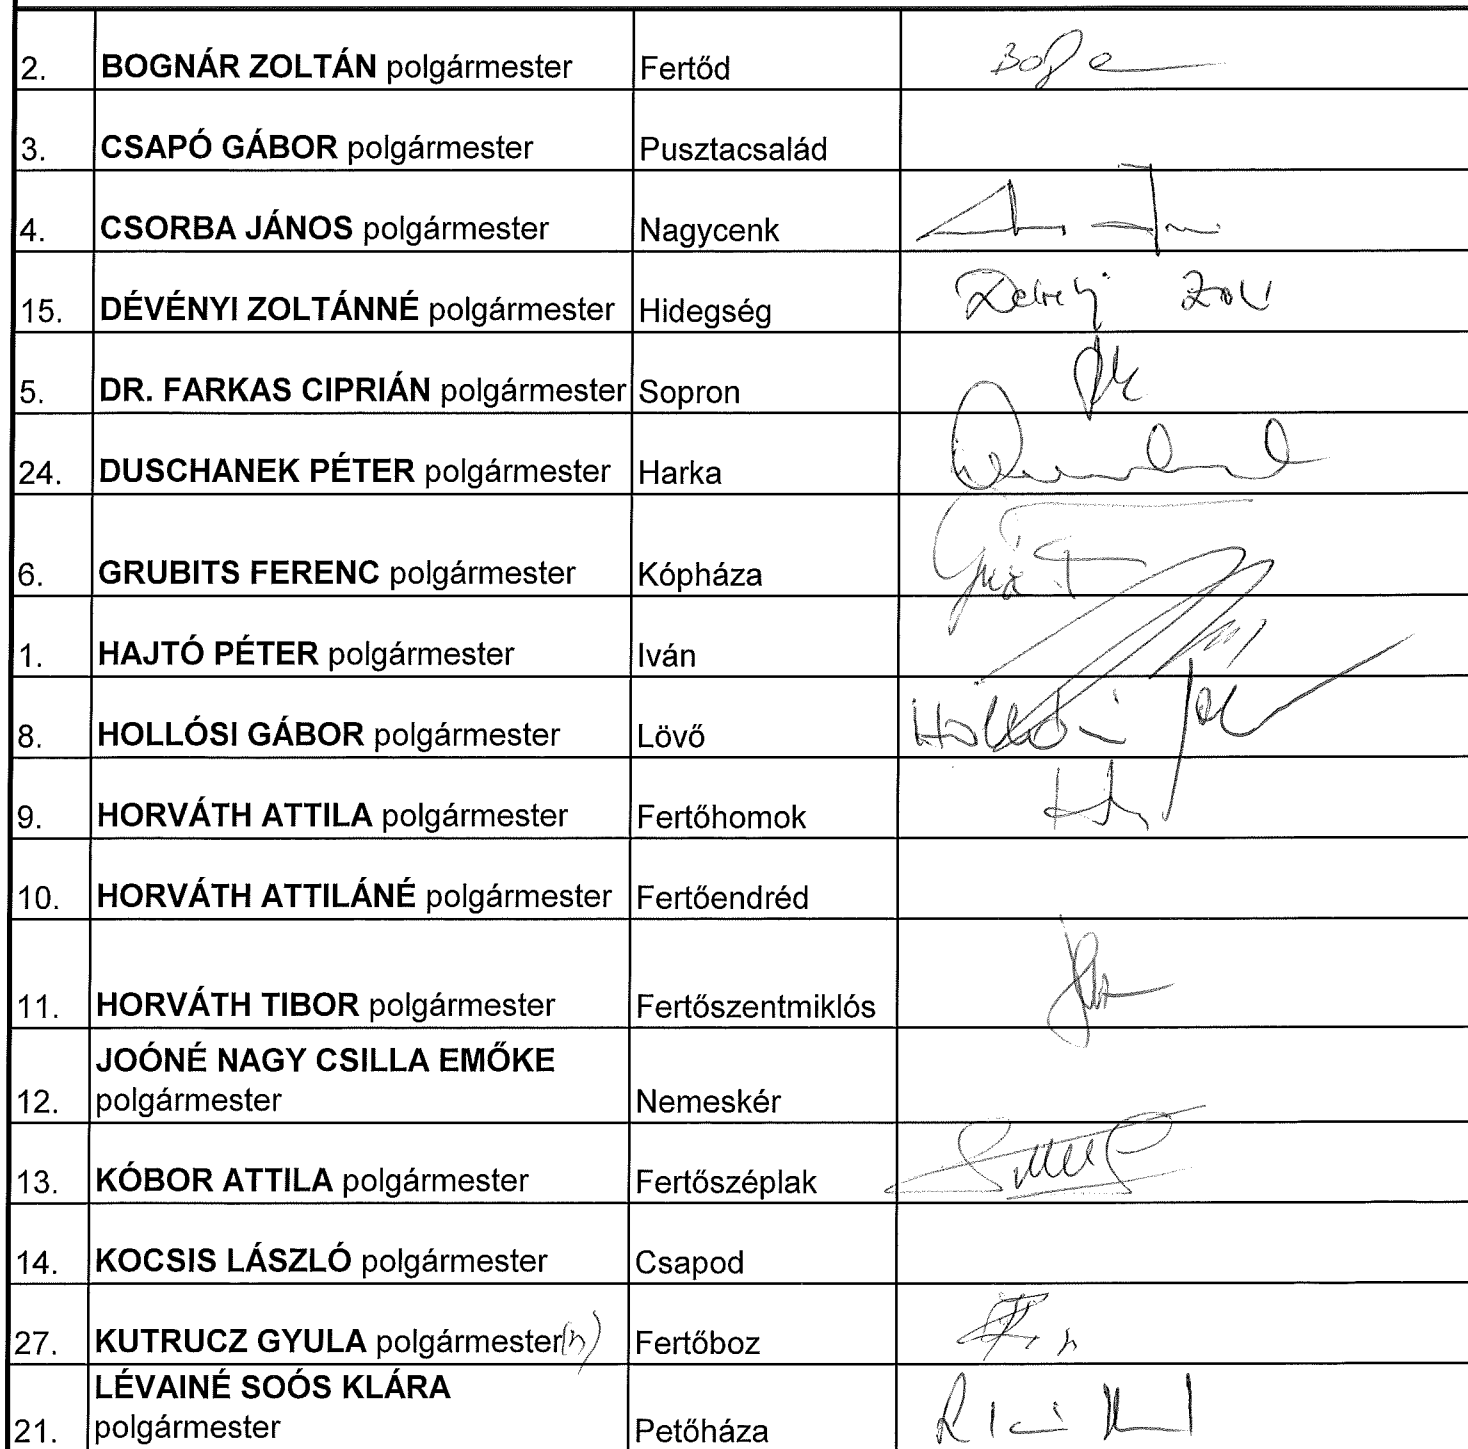 2. BOGNÁR ZOLTÁN polgármester Fertőd
3. CSAPÓ GÁBOR polgármester Pusztacsalád
4. CSORBA JÁNOS polgármester Nagycenk
15. DÉVÉNYI ZOLTÁNNÉ polgármester Hidegség
5. DR. FARKAS CIPRIÁN polgármester Sopron
24. DUSCHANEK PÉTER polgármester Harka
6. GRUBITS FERENC polgármester Kópháza
1. HAJTÓ PÉTER polgármester Iván
8. HOLLÓSI GÁBOR polgármester Lövő Hollósi
9. HORVÁTH ATTILA polgármester Fertőhomok
10. HORVÁTH ATTILÁNÉ polgármester Fertőendréd
11. HORVÁTH TIBOR polgármester Fertőszentmiklós
JOÓNÉ NAGY CSILLA EMŐKE
12. polgármester Nemeskér
13. KÓBOR ATTILA polgármester Fertőszéplak
14. KOCSIS LÁSZLÓ polgármester Csapod
27. KUTRUCZ GYULA polgármester(h) Fertőboz
LÉVAINÉ SOÓS KLÁRA
21. polgármester Petőháza